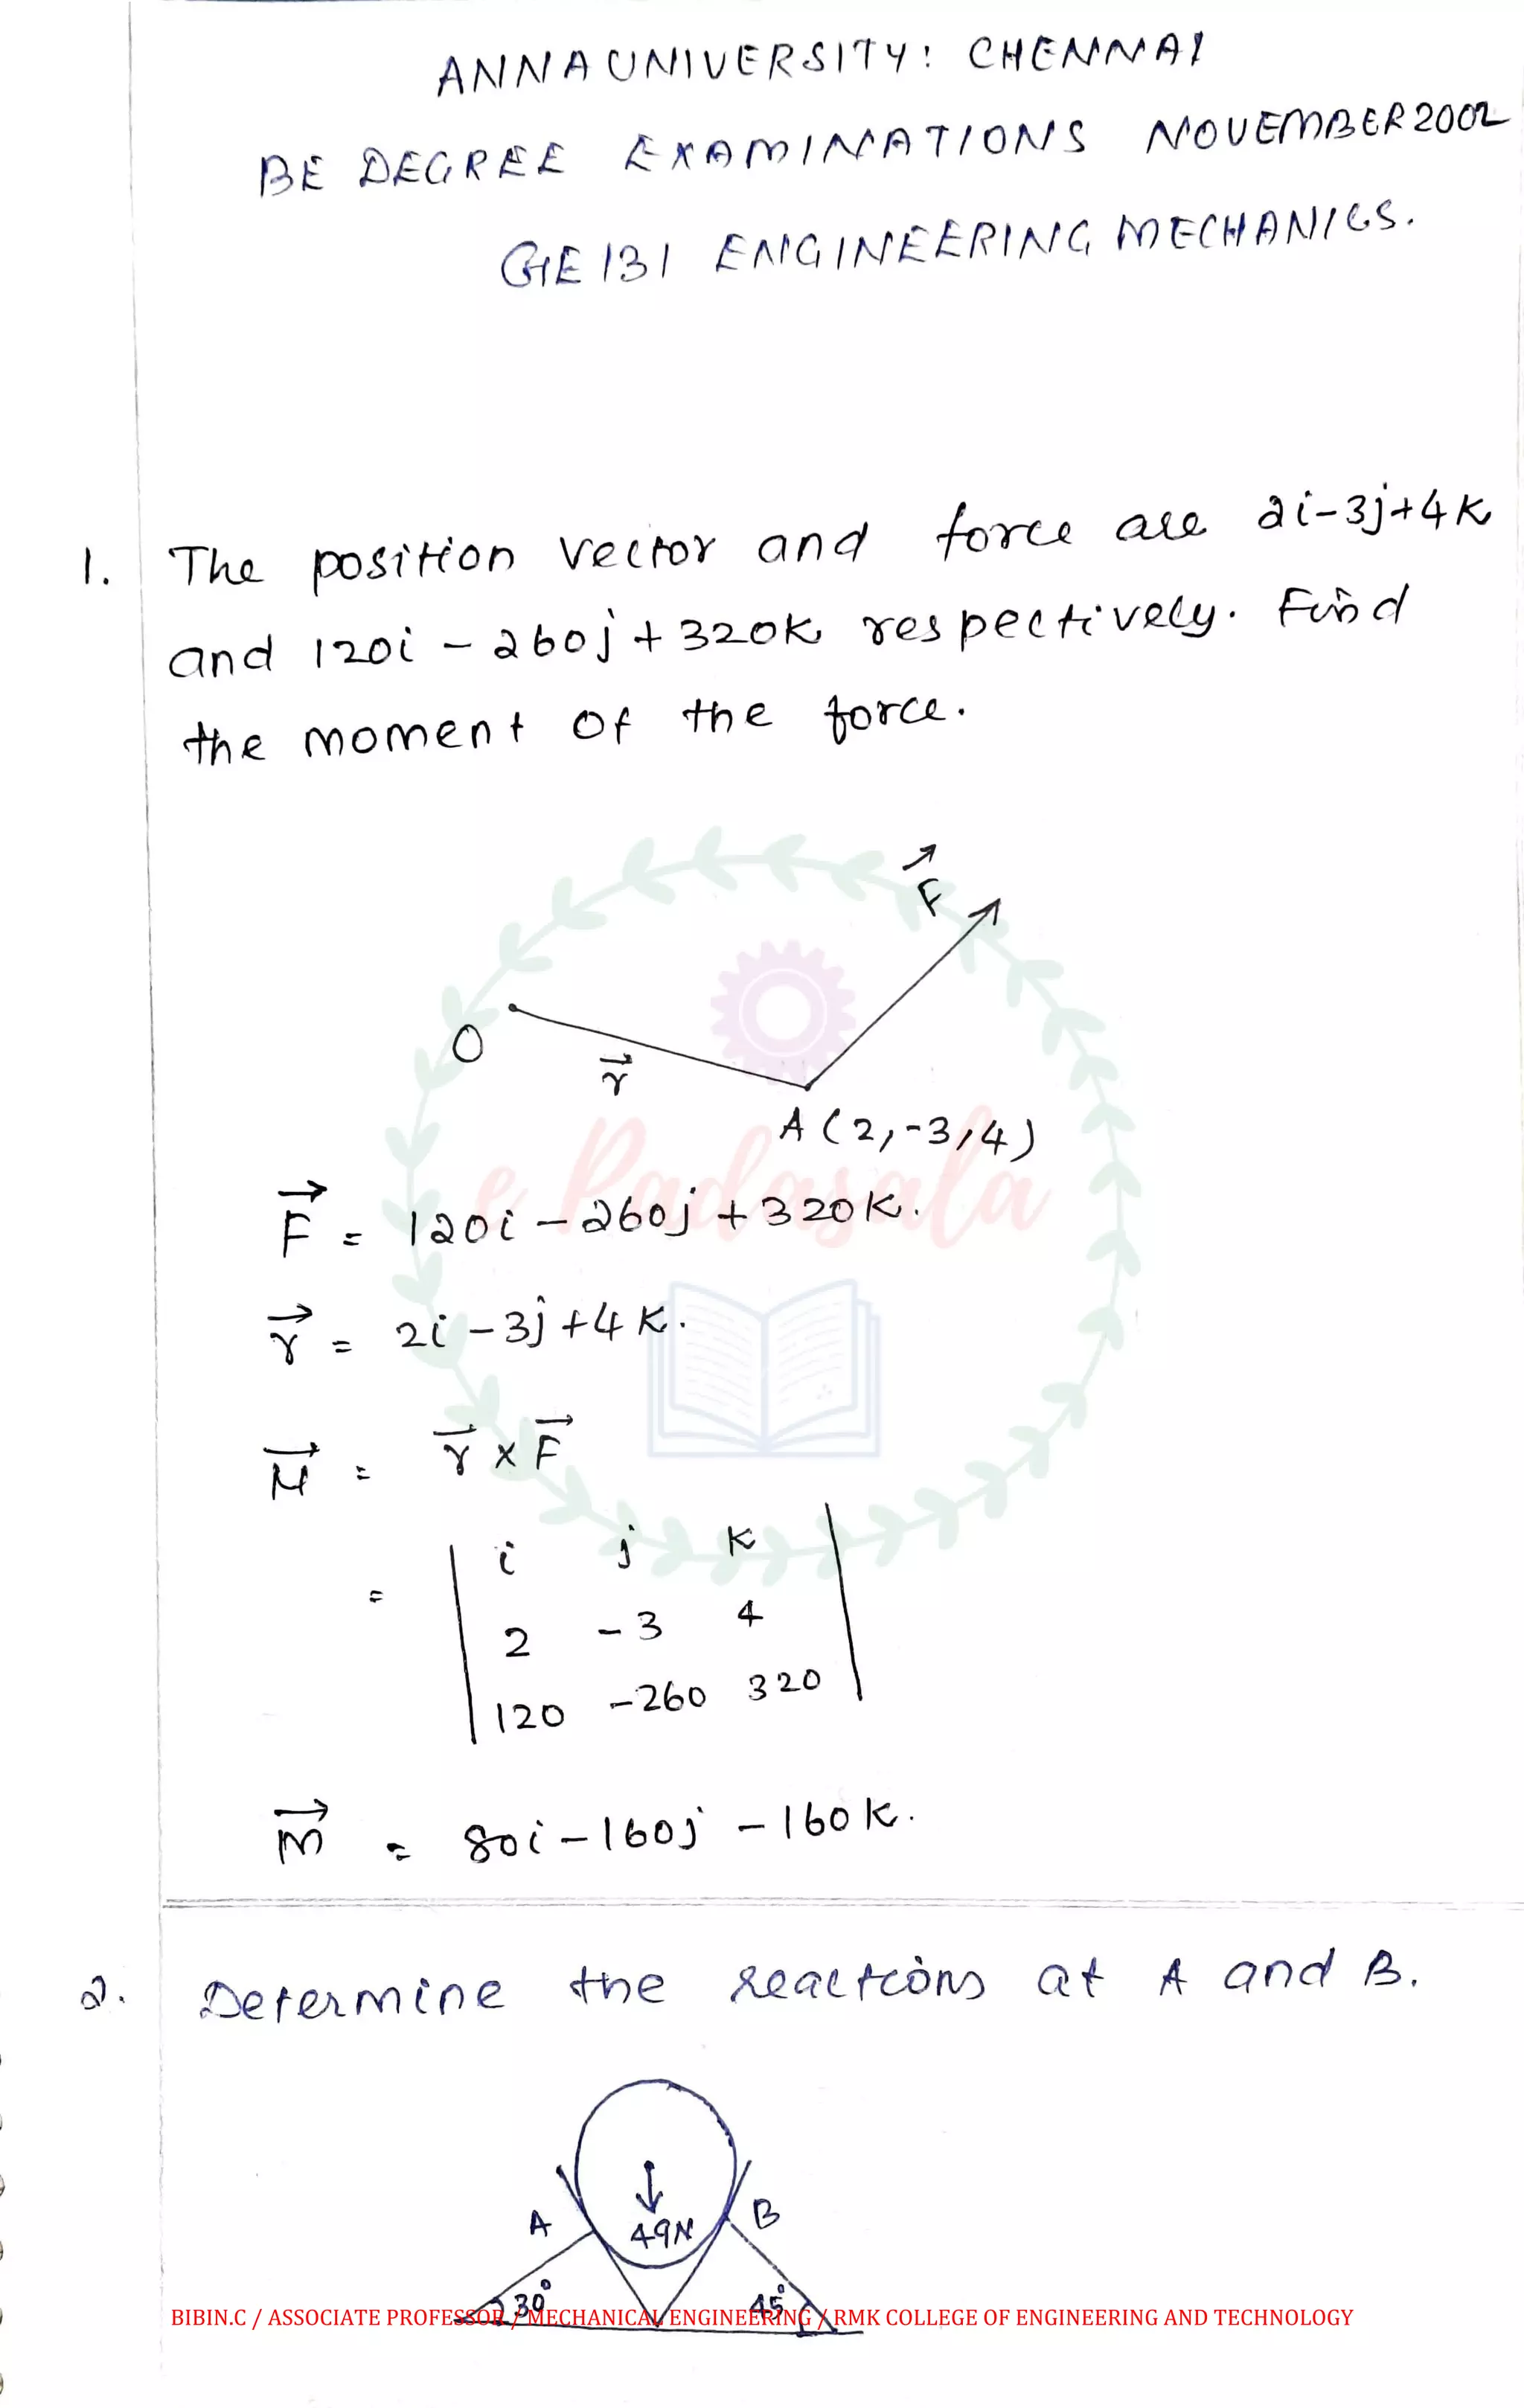 ANNA UNIVERSITY: CHENNAI
BE DEGREE EXAMINATIONS NOVEMBER 2002
GE 131 ENGINEERING MECHANICS.
1. The position vector and force are 2i-3j+4k
and 120i - 260j + 320k respectively. Find
the moment of the force.
F
O
r
A (2,-3,4)
e Padasala
F = 120i - 260j + 320k.
r = 2i - 3j + 4k.
M = r x F
= | i j k
2 -3 4
120 -260 320 |
M = 80i - 160j - 160k.
2. Determine the reactions at A and B.
A 49N B
30° 45°
BIBIN.C / ASSOCIATE PROFESSOR / MECHANICAL ENGINEERING / RMK COLLEGE OF ENGINEERING AND TECHNOLOGY